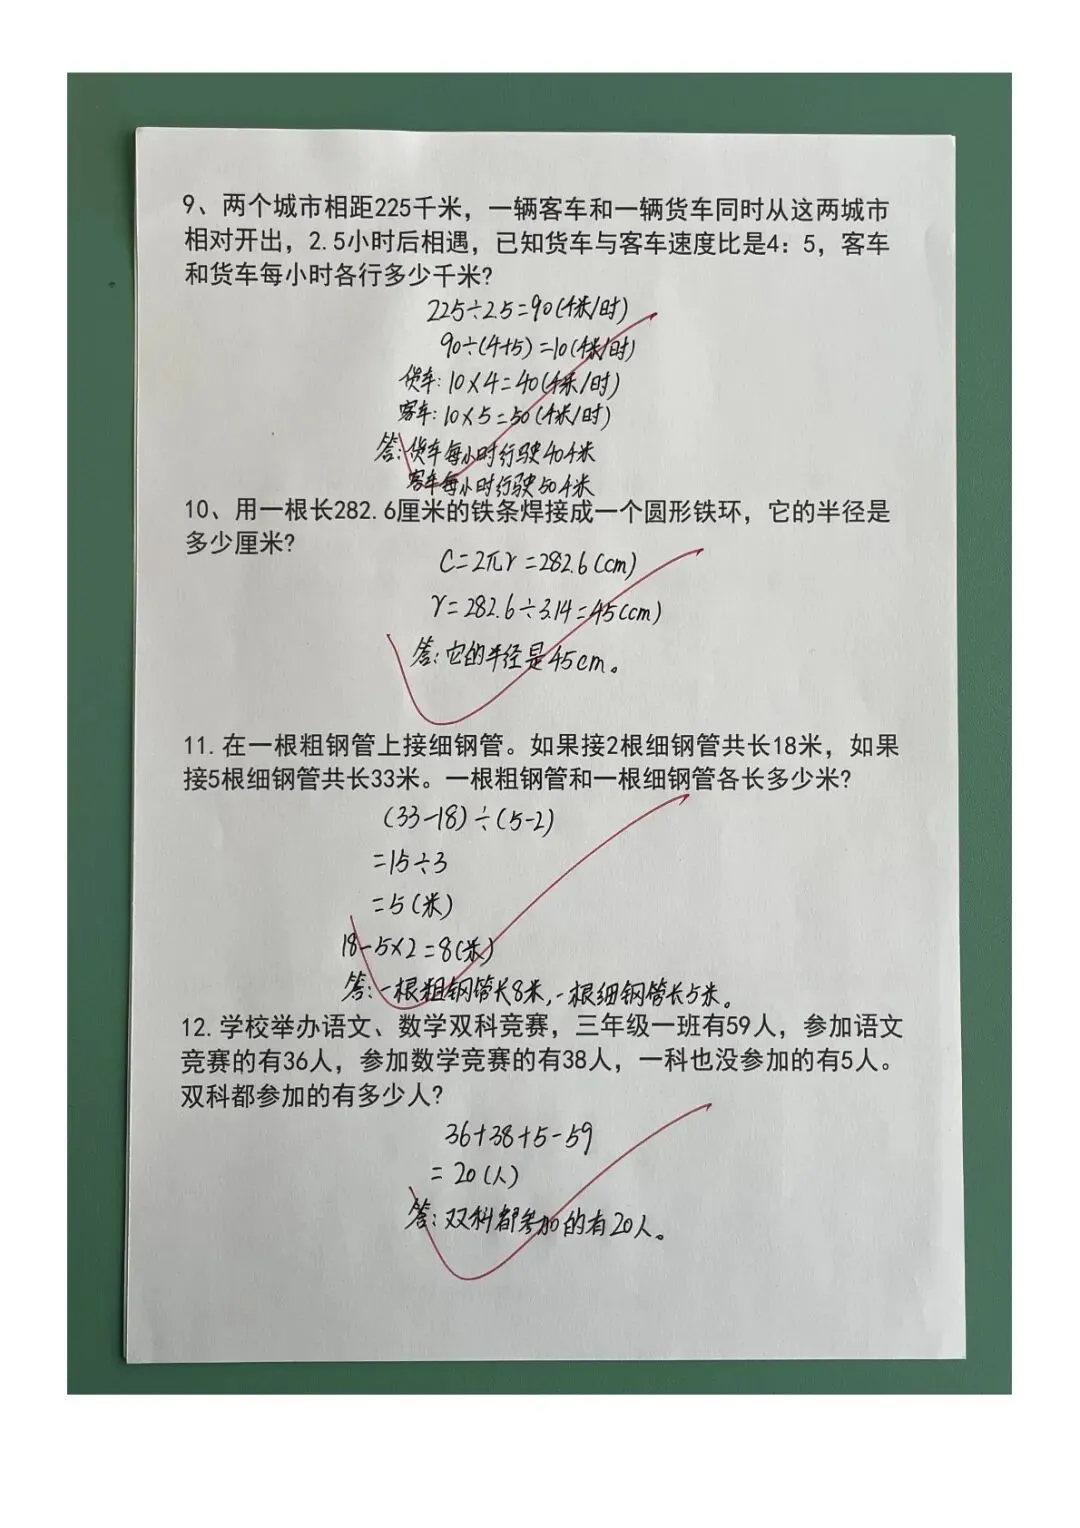 9、两个城市相距225千米，一辆客车和一辆货车同时从这两城市
相对开出，2.5小时后相遇，已知货车与客车速度比是4：5，客车
和货车每小时各行多少千米?
225÷2.5=90(千米/时)
90÷(4+5)=10(千米/时)
货车:10×4=40(千米/时)
客车:10×5=50(千米/时)
答:货车每小时行驶40千米
客车每小时行驶50千米
10、用一根长282.6厘米的铁条焊接成一个圆形铁环，它的半径是
多少厘米?
C=2πr=282.6(cm)
r=282.6÷3.14=45(cm)
答:它的半径是45cm。
11.在一根粗钢管上接细钢管。如果接2根细钢管共长18米，如果
接5根细钢管共长33米。一根粗钢管和一根细钢管各长多少米?
(33-18)÷(5-2)
=15÷3
=5(米)
18-5×2=8(米)
答:一根粗钢管长8米,一根细钢管长5米。
12.学校举办语文、数学双科竞赛，三年级一班有59人，参加语文
竞赛的有36人，参加数学竞赛的有38人，一科也没参加的有5人。
双科都参加的有多少人?
36+38+5-59
=20(人)
答:双科都参加的有20人。